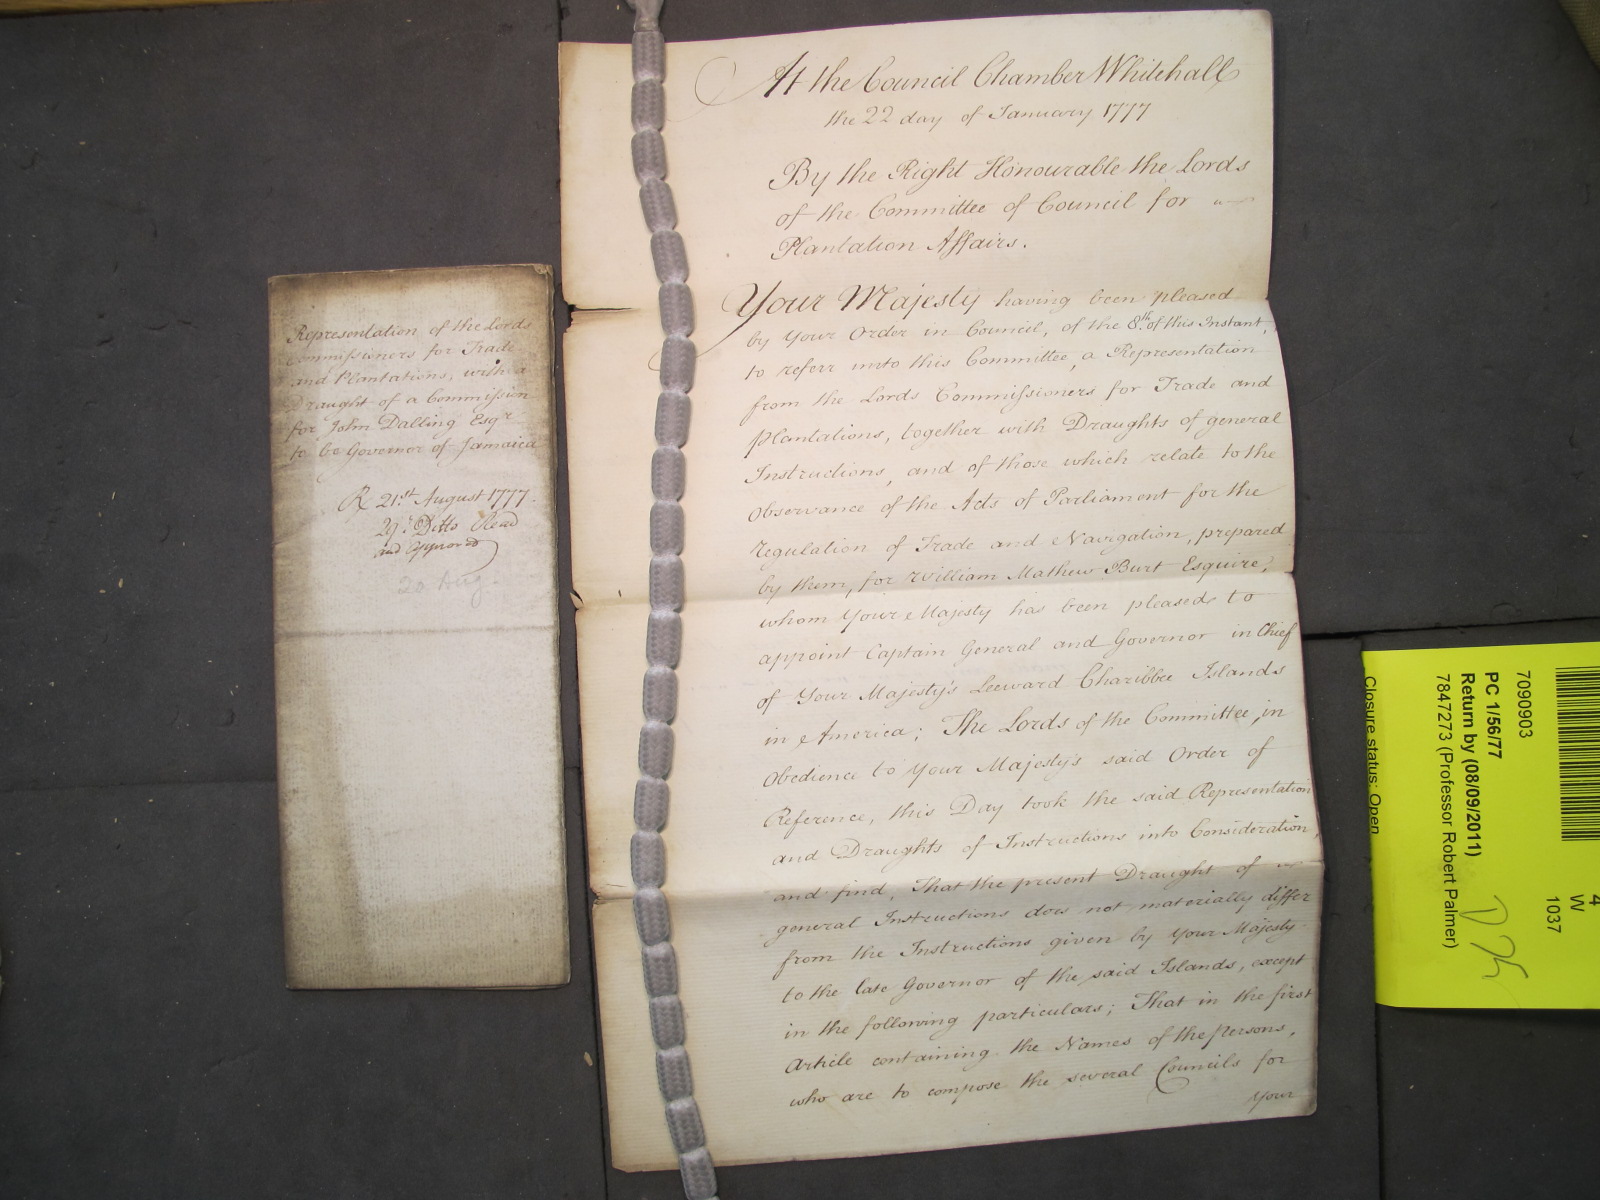 Representation of the Lords
Commissioners for Trade
and Plantations, with a
Draught of a Commission
for John Dalling Esqr
to be Governor of Jamaica
R 21st August 1777.
29th Ditto Read
and approved
20 Aug.
At the Council Chamber Whitehall
the 22 day of January 1777
By the Right Honourable the Lords
of the Committee of Council for
Plantation Affairs.
Your Majesty having been pleased
by Your Order in Council, of the 8th of this Instant,
to referr unto this Committee, a Representation
from the Lords Commissioners for Trade and
Plantations, together with Draughts of general
Instructions, and of those which relate to the
Observance of the Acts of Parliament for the
regulation of Trade and Navigation, prepared
by them, for William Mathew Burt Esquire,
whom Your Majesty has been pleased to
appoint Captain General and Governor in Chief
of Your Majesty's Leeward Charibbee Islands
in America; The Lords of the Committee, in
Obedience to Your Majesty's said Order of
Reference, this Day took the said Representation
and Draughts of Instructions into Consideration,
and find, That the present Draught of
general Instructions does not materially differ
from the Instructions given by Your Majesty
to the late Governor of the said Islands, except
in the following particulars; That in the first
Article containing the Names of the Persons,
who are to compose the several Councils for
Your
7090903
PC 1/56/77
Return by (08/09/2011)
7847273 (Professor Robert Palmer)
Closure status: Open
4
W
1037